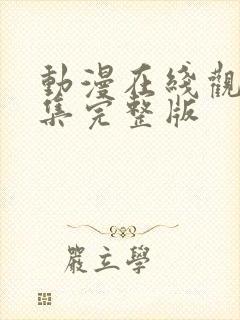 動漫在綫觀
集完整版
嚴立學